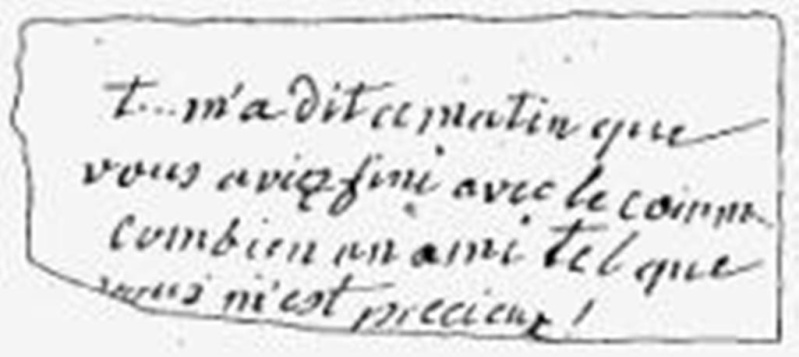 t... m'a dit ce matin que
vous aviez fini avec le comm.
combien un ami tel que
vous m'est precieux!